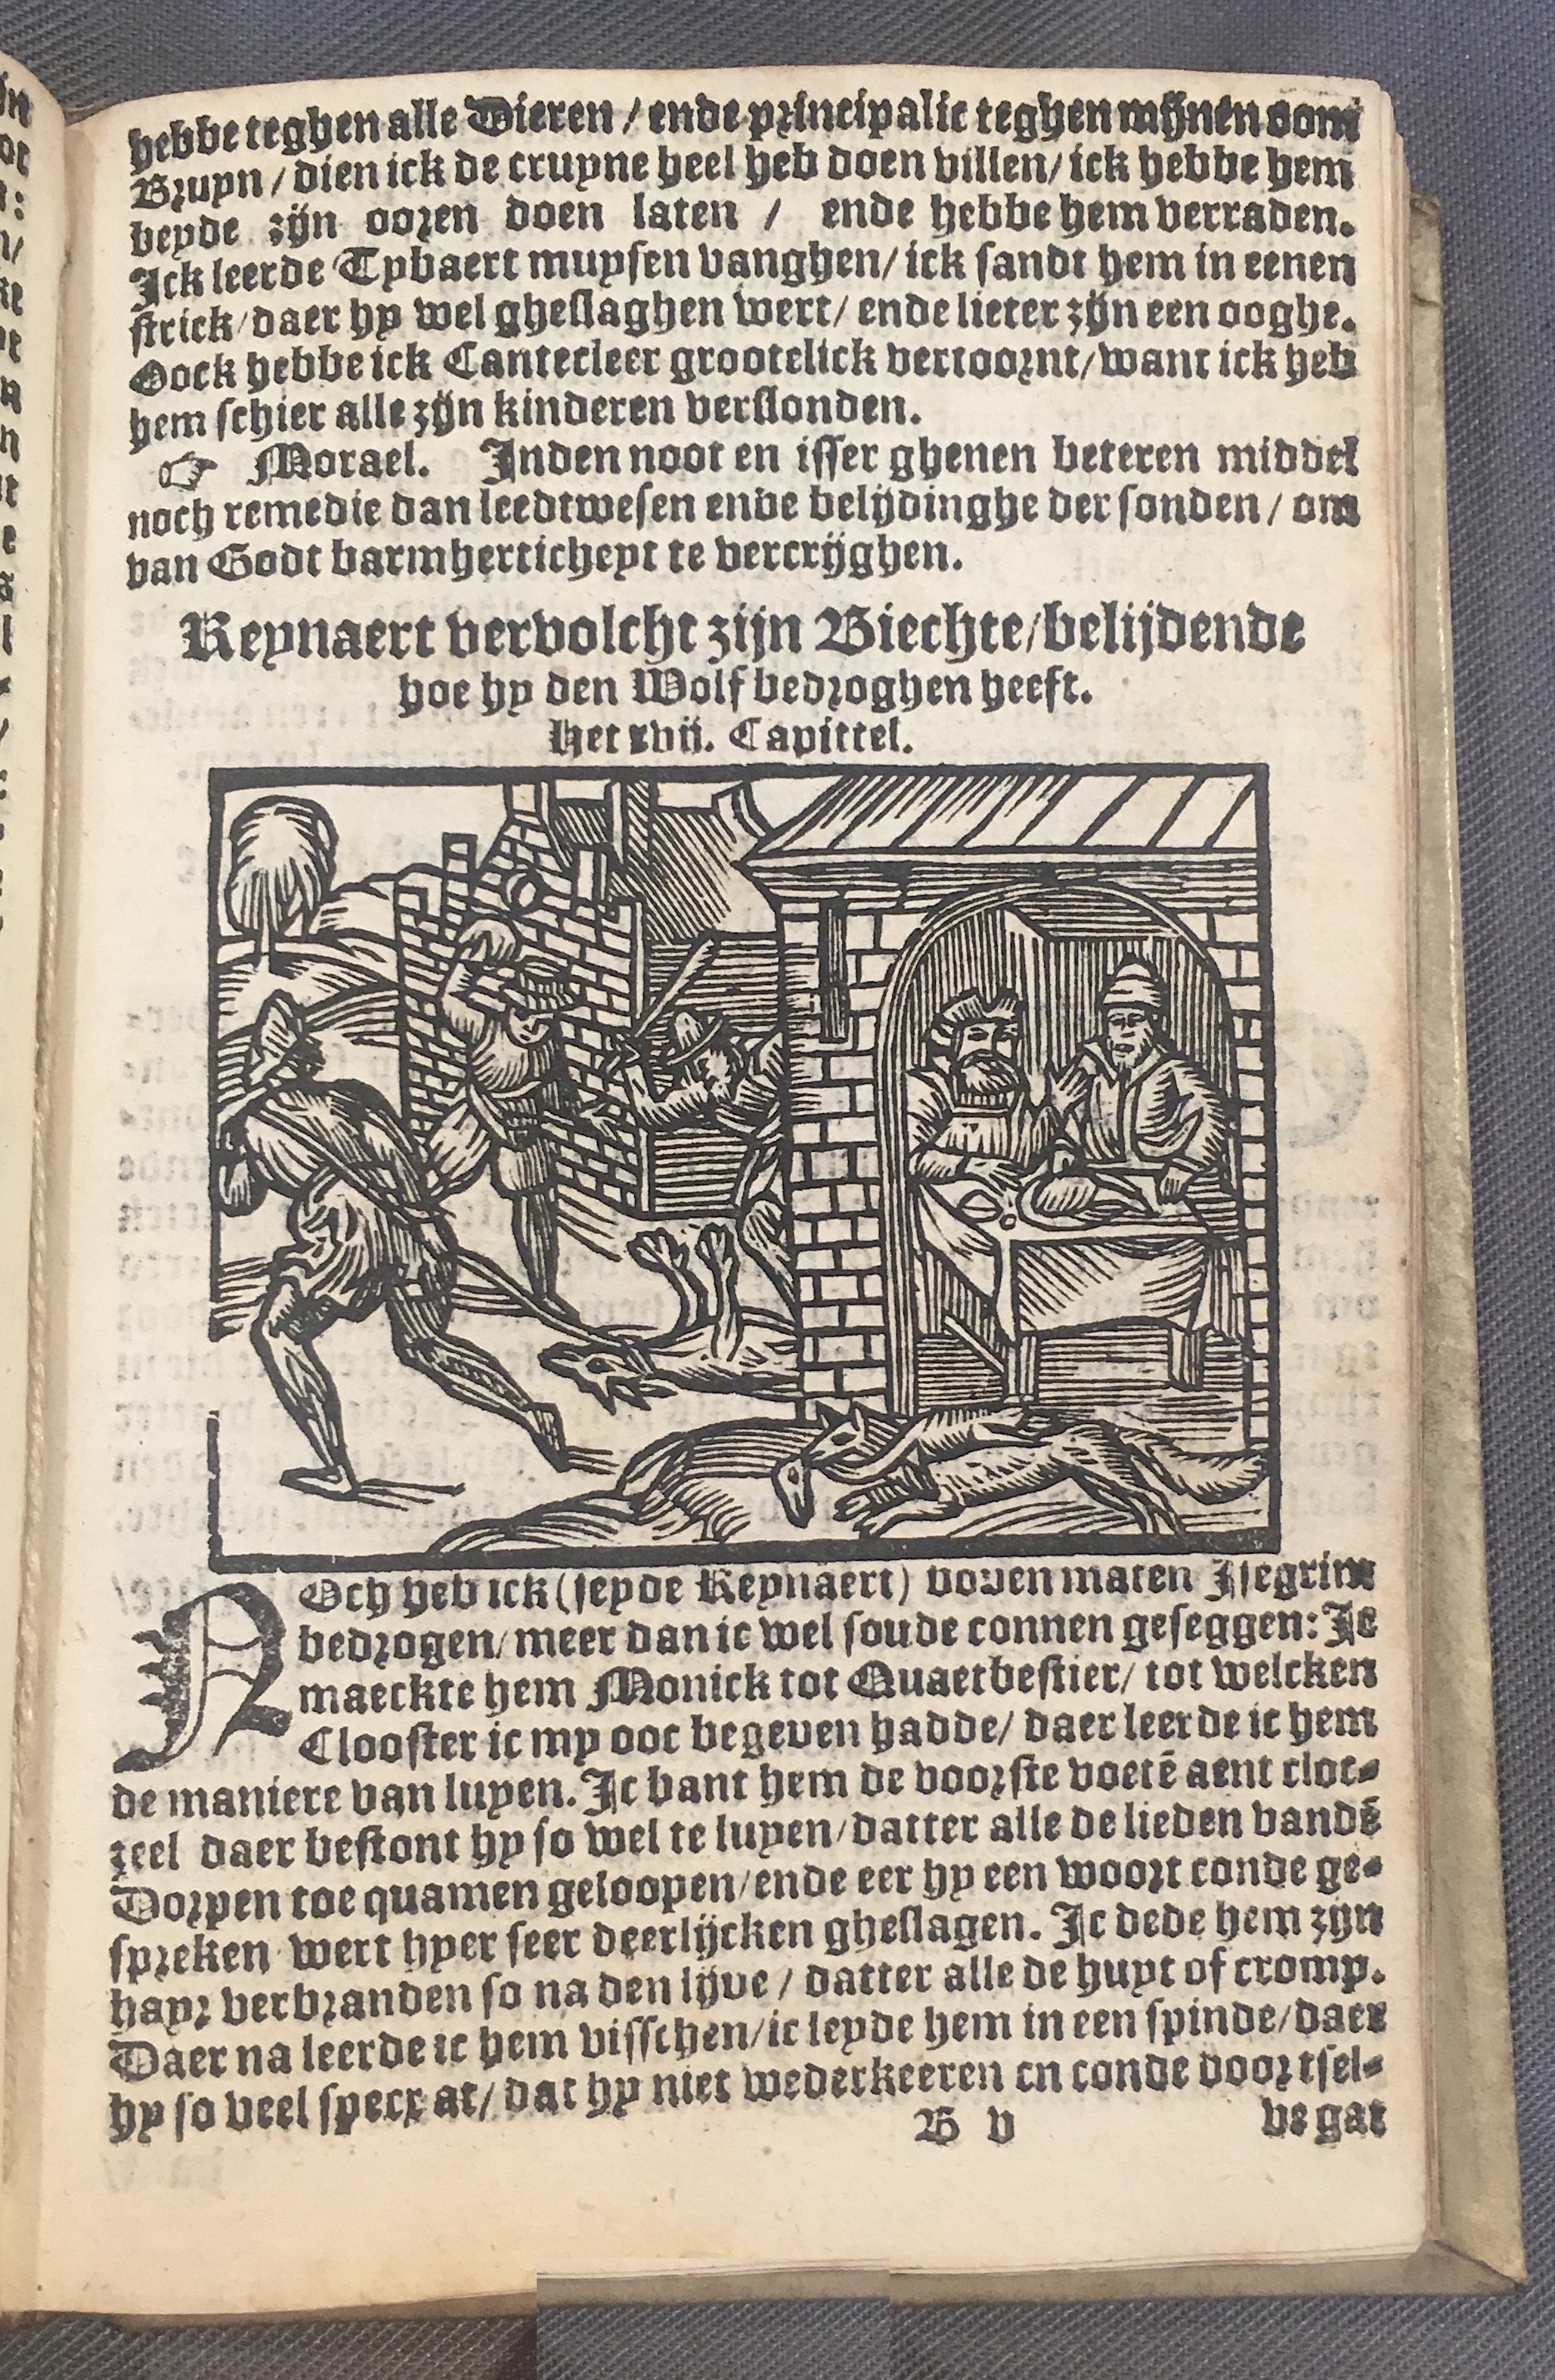 hebbe teghen alle Dieren / ende principalic teghen mijnen oom
Bruyn / dien ick de cruyne heel heb doen villen / ick hebbe hem
beyde zijn ooren doen laten / ende hebbe hem verraden.
Ick leerde Tybaert muysen vanghen / ick sandt hem in eenen
strick / daer hy wel gheslaghen wert / ende lieter zijn een ooghe.
Oock hebbe ick Cantecleer grootelick vertoornt / want ick heb
hem schier alle zijn kinderen verslonden.
☞ Morael. Inden noot en isser ghenen beteren middel
noch remedie dan leedtwesen ende belijdinghe der sonden / om
van Godt barmhertichept te vercrijghen.
Reynaert vervolcht zijn Biechte / belijdende
hoe hy den Wolf bedroghen heeft.
Het xvij. Capittel.
NOch heb ick (seyde Reynaert) boven maten Isegrim
bedrogen / meer dan ic wel soude connen geseggen: Ic
maeckte hem Monick tot Quaetbestier / tot welcken
Clooster ic my ooc begeven hadde / daer leerde ic hem
de maniere van luyen. Ic bant hem de voorste voetē aent cloc-
zeel daer bestont hy so wel te luyen / datter alle de lieden vandē
Dorpen toe quamen geloopen / ende eer hy een woort conde ge-
spreken wert hyer seer deerlijcken gheslagen. Ic dede hem zijn
hayr verbranden so na den lijve / datter alle de huyt of cromp.
Daer na leerde ic hem visschen / ic leyde hem in een spinde / daer
hy so veel specx at / dat hy niet wederkeeren en conde door tsel-
B v ve gat